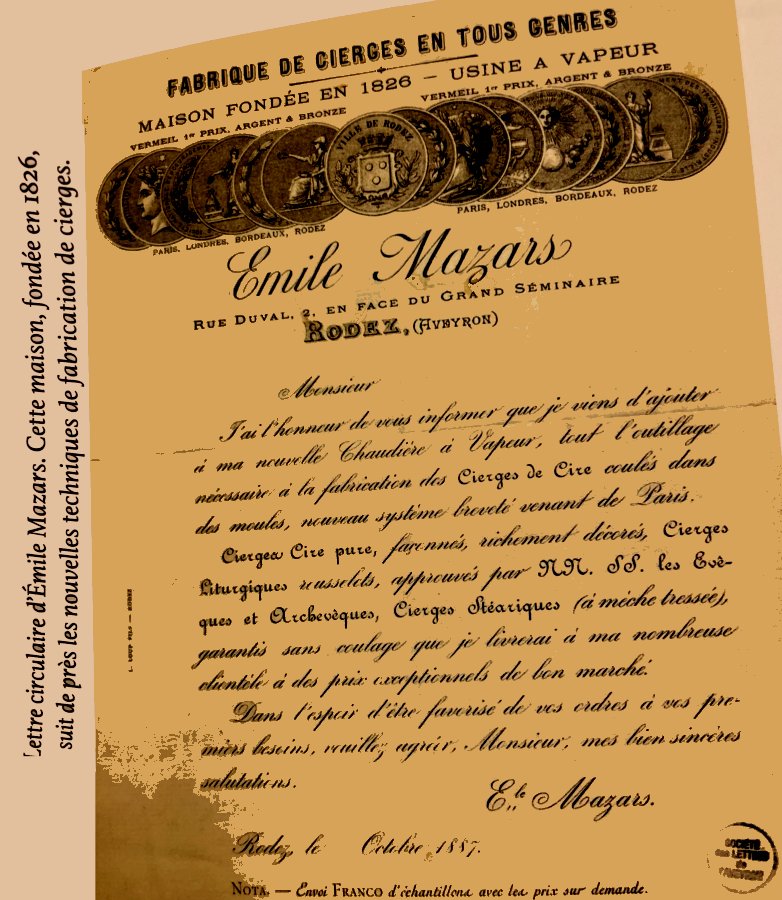 Lettre circulaire d'Émile Mazars. Cette maison, fondée en 1826,
suit de près les nouvelles techniques de fabrication de cierges.
FABRIQUE DE CIERGES EN TOUS GENRES
MAISON FONDÉE EN 1826 – USINE A VAPEUR
VERMEIL 1er PRIX, ARGENT & BRONZE
VERMEIL 1er PRIX, ARGENT & BRONZE
VILLE DE RODEZ
PARIS, LONDRES, BORDEAUX, RODEZ
PARIS, LONDRES, BORDEAUX, RODEZ
Emile Mazars
RUE DUVAL, 2, EN FACE DU GRAND SÉMINAIRE
RODEZ, (AVEYRON)
Monsieur
J'ai l'honneur de vous informer que je viens d'ajouter
à ma nouvelle Chaudière à Vapeur, tout l'outillage
nécessaire à la fabrication des Cierges de Cire coulés dans
des moules, nouveau système breveté venant de Paris.
Cierges Cire pure, façonnés, richement décorés, Cierges
Liturgiques rousselots, approuvés par NN. SS. les Evê-
ques et Archevêques, Cierges Stéariques (à mèche tressée),
garantis sans coulage que je livrerai à ma nombreuse
clientèle à des prix exceptionnels de bon marché.
Dans l'espoir d'être favorisé de vos ordres à vos pre-
miers besoins, veuillez agréer, Monsieur, mes bien sincères
salutations.
E.le Mazars.
Rodez, le Octobre 1887.
NOTA. — Envoi FRANCO d'échantillons avec les prix sur demande.
L. LOUP FILS — RODEZ
SOCIÉTÉ
des LETTRES
de
l'AVEYRON